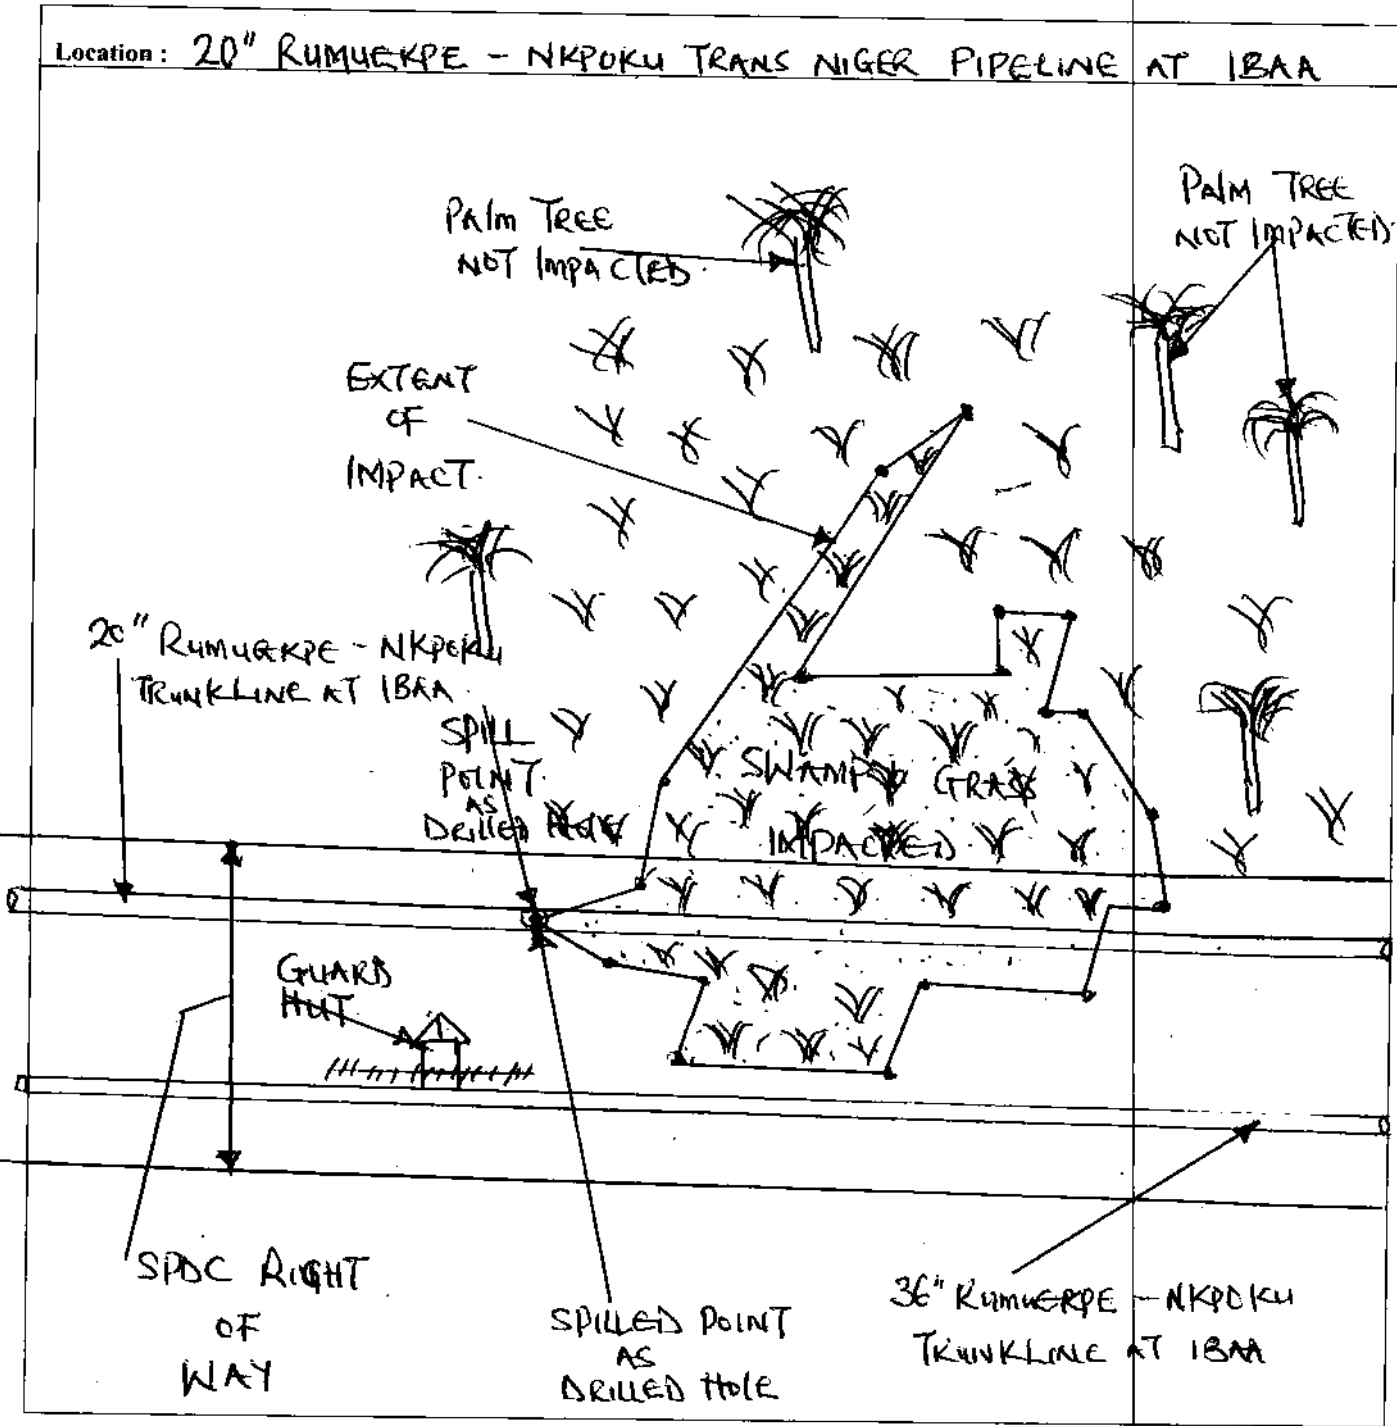 Location : 20" RUMUEKPE - NKPOKU TRANS NIGER PIPELINE AT IBAA
PALM TREE
NOT IMPACTED.
PALM TREE
NOT IMPACTED.
EXTENT
OF
IMPACT.
20" RUMUEKPE - NKPOKU
TRUNKLINE AT IBAA
SPILL
POINT
AS
DRILLED HOLE
SWAMPY GRASS
IMPACTED
GUARD
HUT
SPDC RIGHT
OF
WAY
SPILLED POINT
AS
DRILLED HOLE
36" RUMUEKPE - NKPOKU
TRUNKLINE AT IBAA